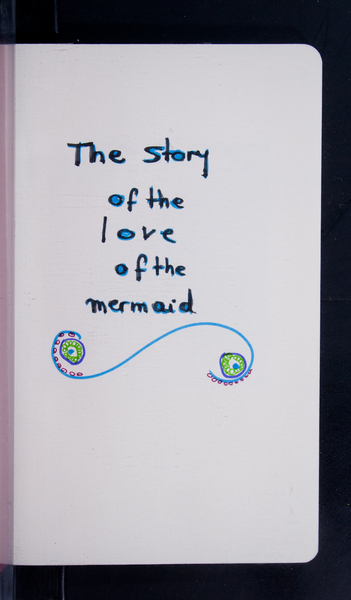 The story
of the
love
of the
mermaid